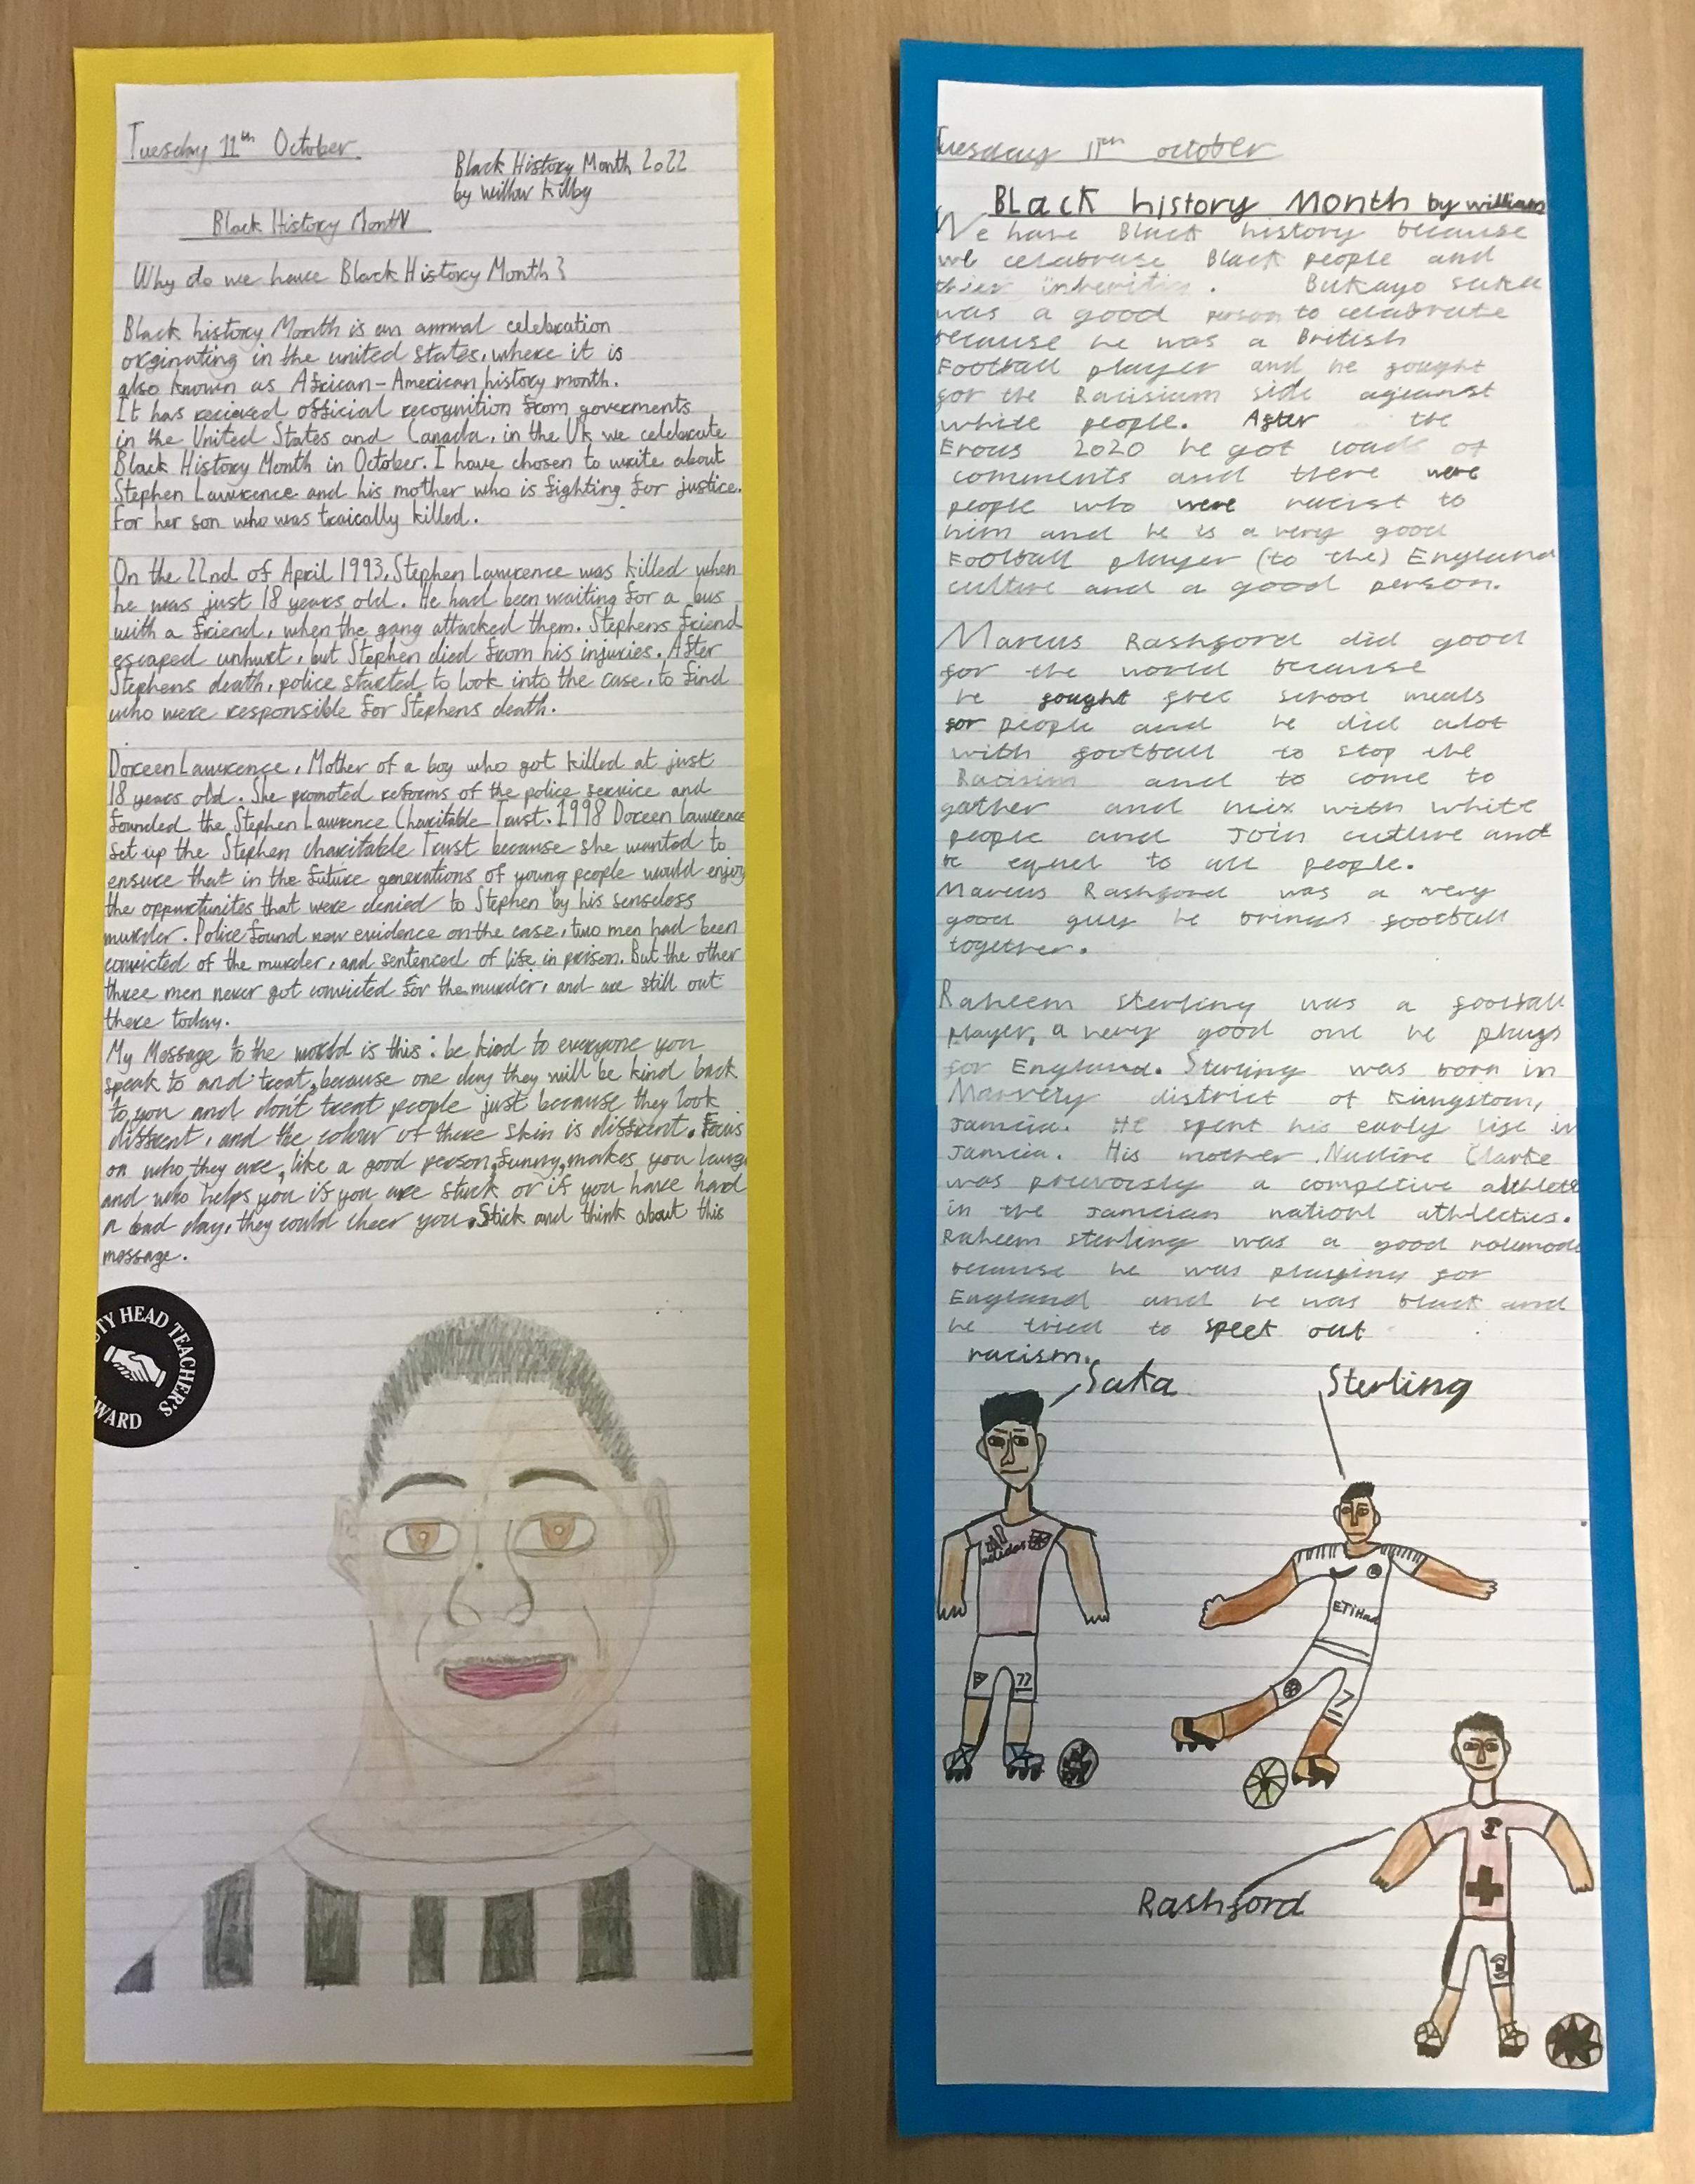 Tuesday 11th October
Black History Month 2022
by Willow Kilby
Black History Month
Why do we have Black History Month?
Black history Month is an annual celebration
orginating in the united states, where it is
also known as African-American history month.
It has recieved official recognition from goverments
in the United States and Canada, in the Uk we celebrate
Black History Month in October. I have chosen to write about
Stephen Lawrence and his mother who is fighting for justice.
For her son who was traically killed.
On the 22nd of April 1993, Stephen Lawrence was killed when
he was just 18 years old. He had been waiting for a bus
with a friend, when the gang attacked them. Stephens friend
escaped unhurt, but Stephen died from his injuries. After
Stephens death, police started to look into the case, to find
who were responsible for Stephens death.
Doreen Lawrence, Mother of a boy who got killed at just
18 years old. She promoted reforms of the police service and
founded the Stephen Lawrence Charitable Trust. 1998 Doreen Lawrence
set up the Stephen charitable Trust because she wanted to
ensure that in the future generations of young people would enjoy
the oppurtunites that were denied to Stephen by his senseless
murder. Police found new evidence on the case, two men had been
convicted of the murder, and sentenced of life in prison. But the other
three men never got convicted for the murder, and are still out
there today.
My Message to the world is this: be kind to everyone you
speak to and treat, because one day they will be kind back
to you and don't treat people just because they look
diffrent, and the colour of there skin is diffrent. Focus
on who they are, like a good person, funny, makes you laugh
and who helps you if you are stuck or if you have hard
a bad day, they could cheer you. Stick and think about this
message.
TY HEAD TEACHER'S
WARD
Tuesday 11th october
Black history Month by william
We have Black history because
we celabrase Black people and
thier . Bukayo saka
was a good person to celabrate
because he was a British
Football player and he fought
for the Racisium side agianst
white people. After the
Erous 2020 he got loads of
comments and there were
people who were racist to
him and he is a very good
Football player (to the) England
culture and a good person.
Marcus Rashford did good
for the world because
he fought free school meals
for people and he did alot
with football to stop the
Racisim and to come to
gather and mix with white
people and Join cutlure and
be equel to all people.
Marcus Rashford was a very
good guy he brings football
together.
Raheem sterling was a football
player, a very good one he plays
for England. Sterling was born in
Marvely district of Kingstom,
Jamcia. He spent his early life in
Jamcia. His mother Nadine Clarke
was prevorsly a completive athlete
in the Jamcian nationl athlectics.
Raheem sterling was a good rolemode
because he was playing for
England and he was black and
he tried to speek out
racism.
Saka
Sterling
adidas
ETIHad
77
7
Rashford